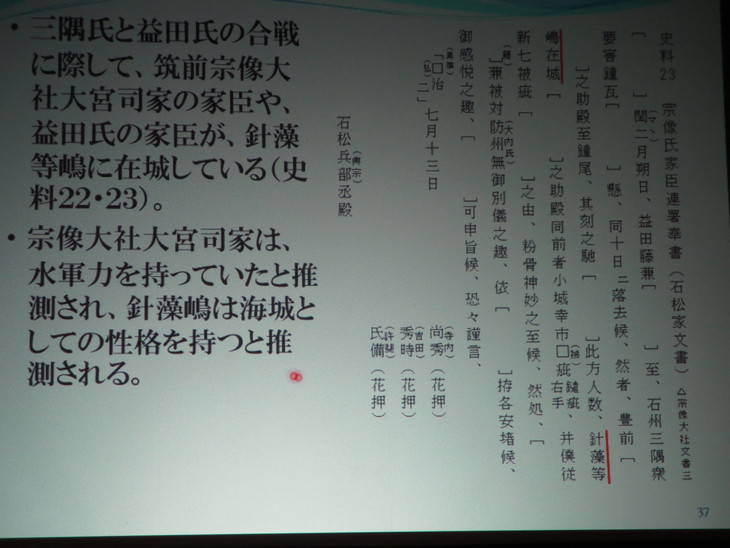 ・三隅氏と益田氏の合戦
に際して、筑前宗像大
社大宮司家の家臣や、
益田氏の家臣が、針藻
等嶋に在城している(史
料22・23)。
・宗像大社大宮司家は、
水軍力を持っていたと推
測され、針藻嶋は海城と
しての性格を持つと推
測される。
史料23 宗像氏家臣連署奉書(石松家文書) △宗像大社文書三
[ ]閏(マヽ)二月朔日、益田藤兼[ ]至、石州三隅衆
要害鐘瓦[ ]懸、同十日ニ落去候、然者、豊前[
]之助殿至鐘尾、其刻之馳[ ]此方人数、針藻等
嶋在城[ ]之助殿同前者小城幸市□疵右手(捨)鑓疵、并僕従
新七被疵[ ]之由、粉骨神妙之至候、然処、[
]兼被対防州(大内氏)無御別儀之趣、依[ ]拵各安堵候、
御感悦之趣、[ ]可申旨候、恐々謹言、
「□治(弘)二」七月十三日
尚秀(寺内)(花押)
秀時(吉田)(花押)
氏備(許斐)(花押)
石松兵部丞殿
37